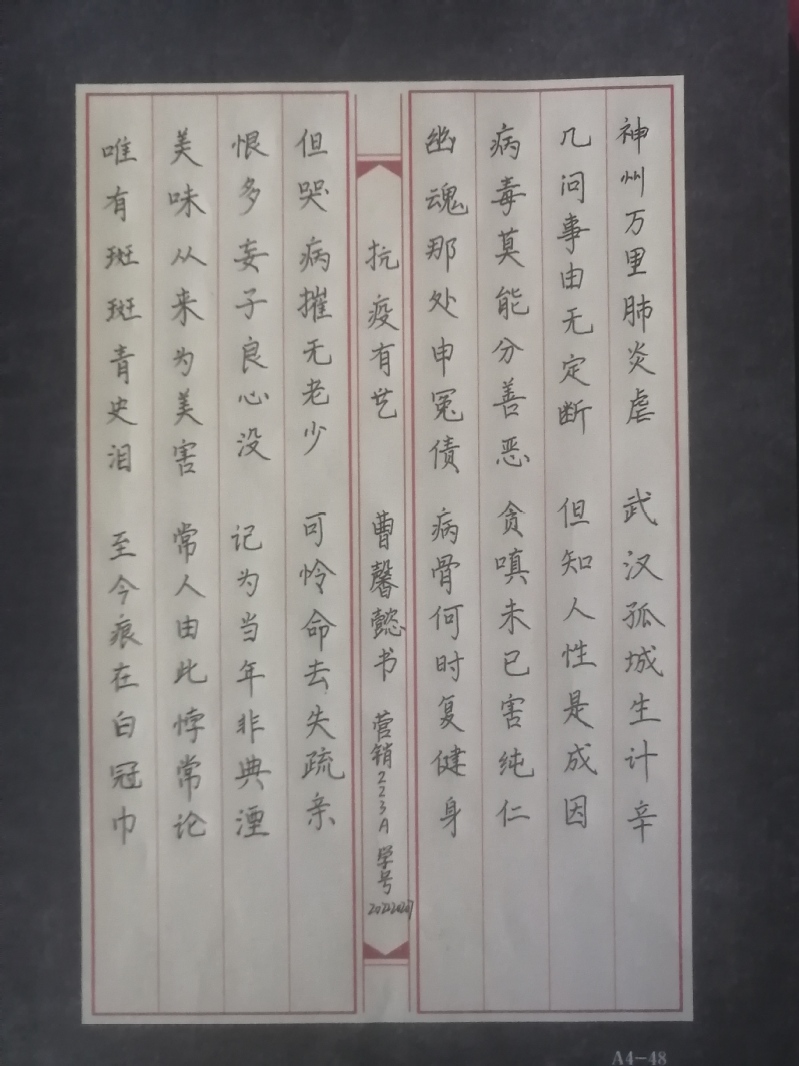 神州万里肺炎虐 武汉孤城生计辛
几问事由无定断 但知人性是成因
病毒莫能分善恶 贪嗔未已害纯仁
幽魂那处申冤债 病骨何时复健身
抗疫有艺 曹馨懿书 营销223A 学号
但哭病摧无老少 可怜命去失疏亲
恨多妄子良心没 记为当年非典湮
美味从来为美害 常人由此悖常论
唯有斑斑青史泪 至今痕在白冠巾
A4-48